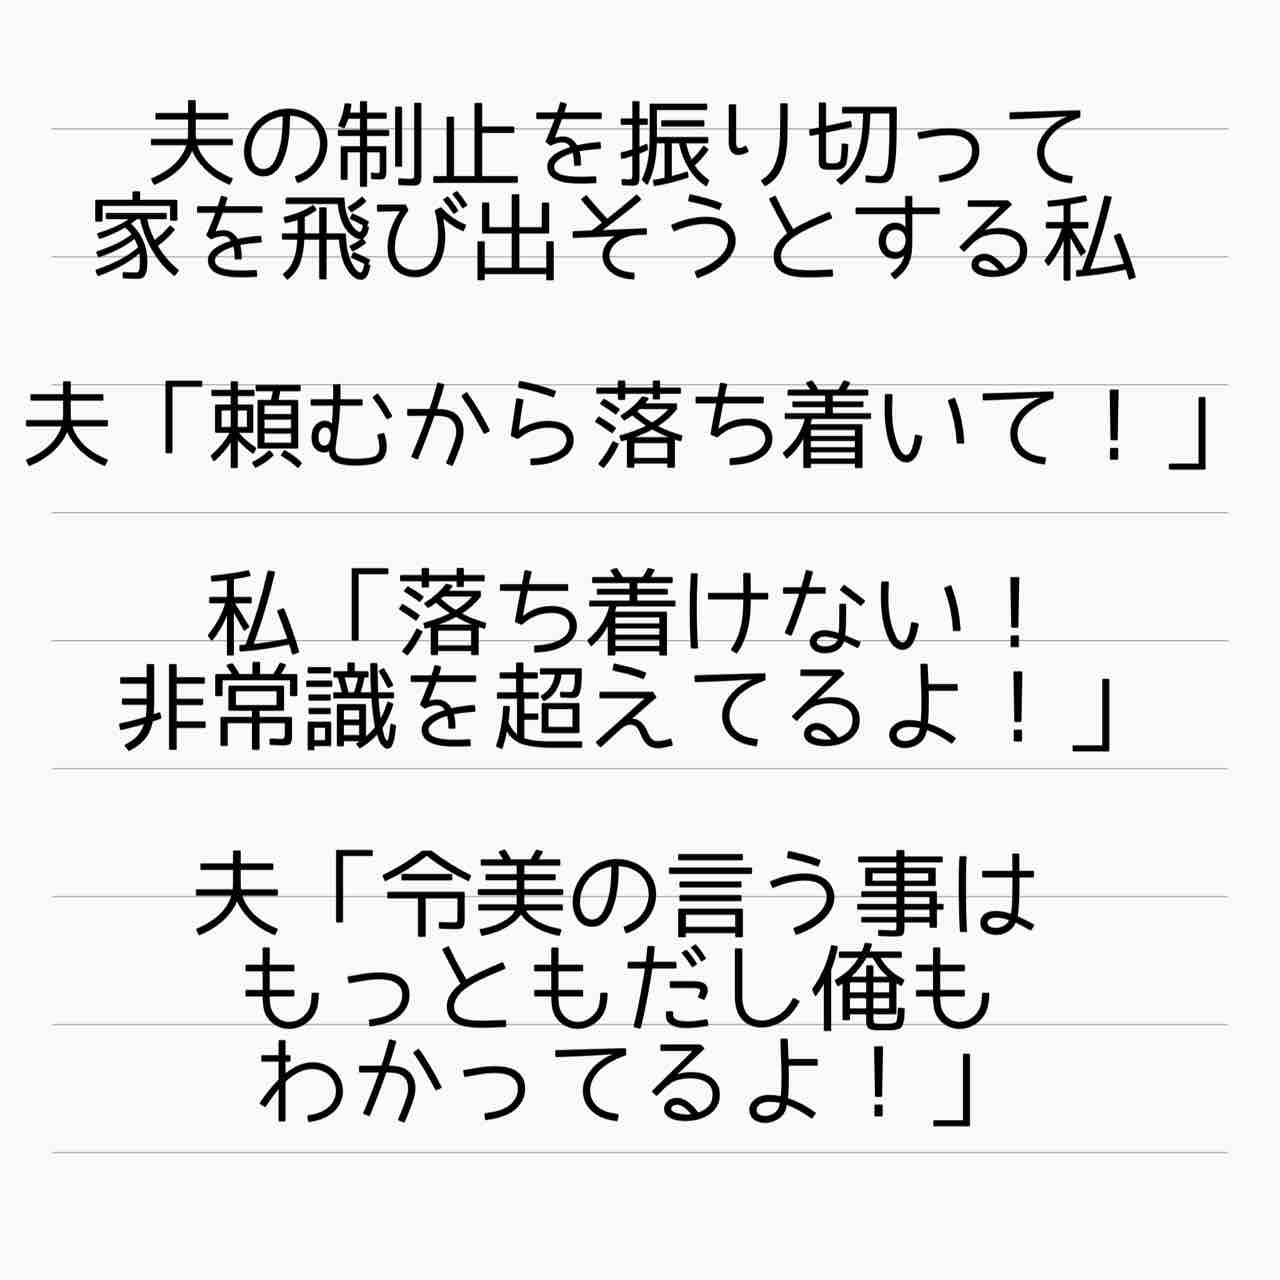 夫の制止を振り切って
家を飛び出そうとする私
夫「頼むから落ち着いて！」
私「落ち着けない！
非常識を超えてるよ！」
夫「令美の言う事は
もっともだし俺も
わかってるよ！」